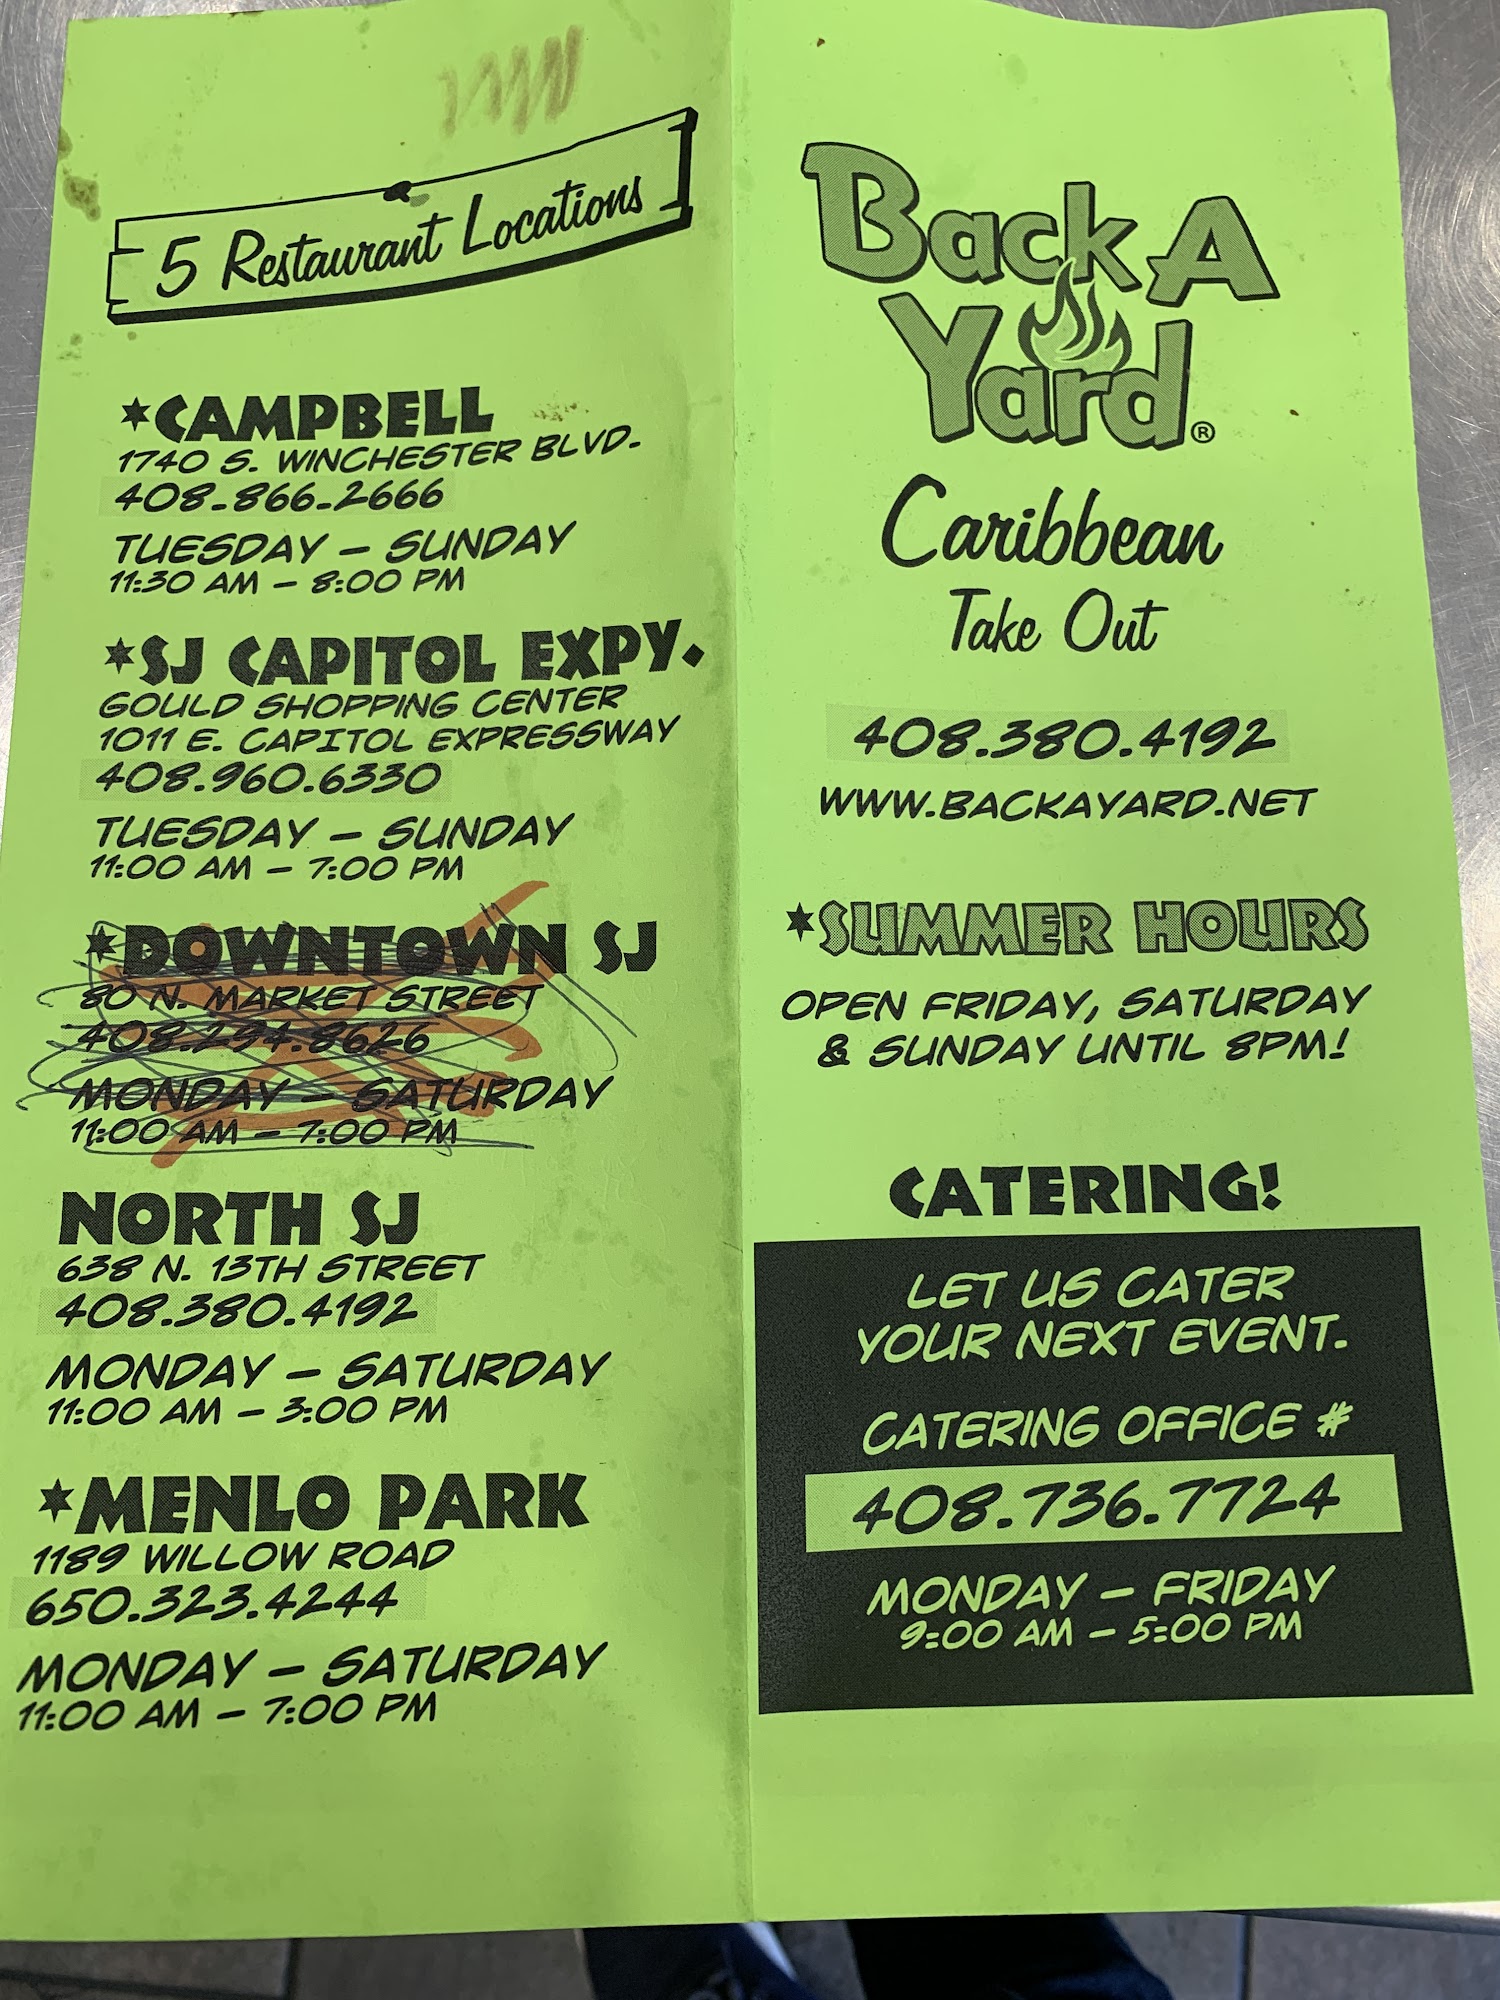 5 Restaurant Locations
*CAMPBELL
1740 S. WINCHESTER BLVD.
408-866-2666
TUESDAY – SUNDAY
11:30 AM – 8:00 PM
*SJ CAPITOL EXPY.
GOULD SHOPPING CENTER
1011 E. CAPITOL EXPRESSWAY
408.960.6330
TUESDAY – SUNDAY
11:00 AM – 7:00 PM
*DOWNTOWN SJ
80 N. MARKET STREET
408.294.8626
MONDAY – SATURDAY
11:00 AM – 7:00 PM
NORTH SJ
638 N. 13TH STREET
408.380.4192
MONDAY – SATURDAY
11:00 AM – 3:00 PM
*MENLO PARK
1189 WILLOW ROAD
650.323.4244
MONDAY – SATURDAY
11:00 AM – 7:00 PM
Back A
Yard®
Caribbean
Take Out
408.380.4192
WWW.BACKAYARD.NET
*SUMMER HOURS
OPEN FRIDAY, SATURDAY
& SUNDAY UNTIL 8PM!
CATERING!
LET US CATER
YOUR NEXT EVENT.
CATERING OFFICE #
408.736.7724
MONDAY – FRIDAY
9:00 AM – 5:00 PM